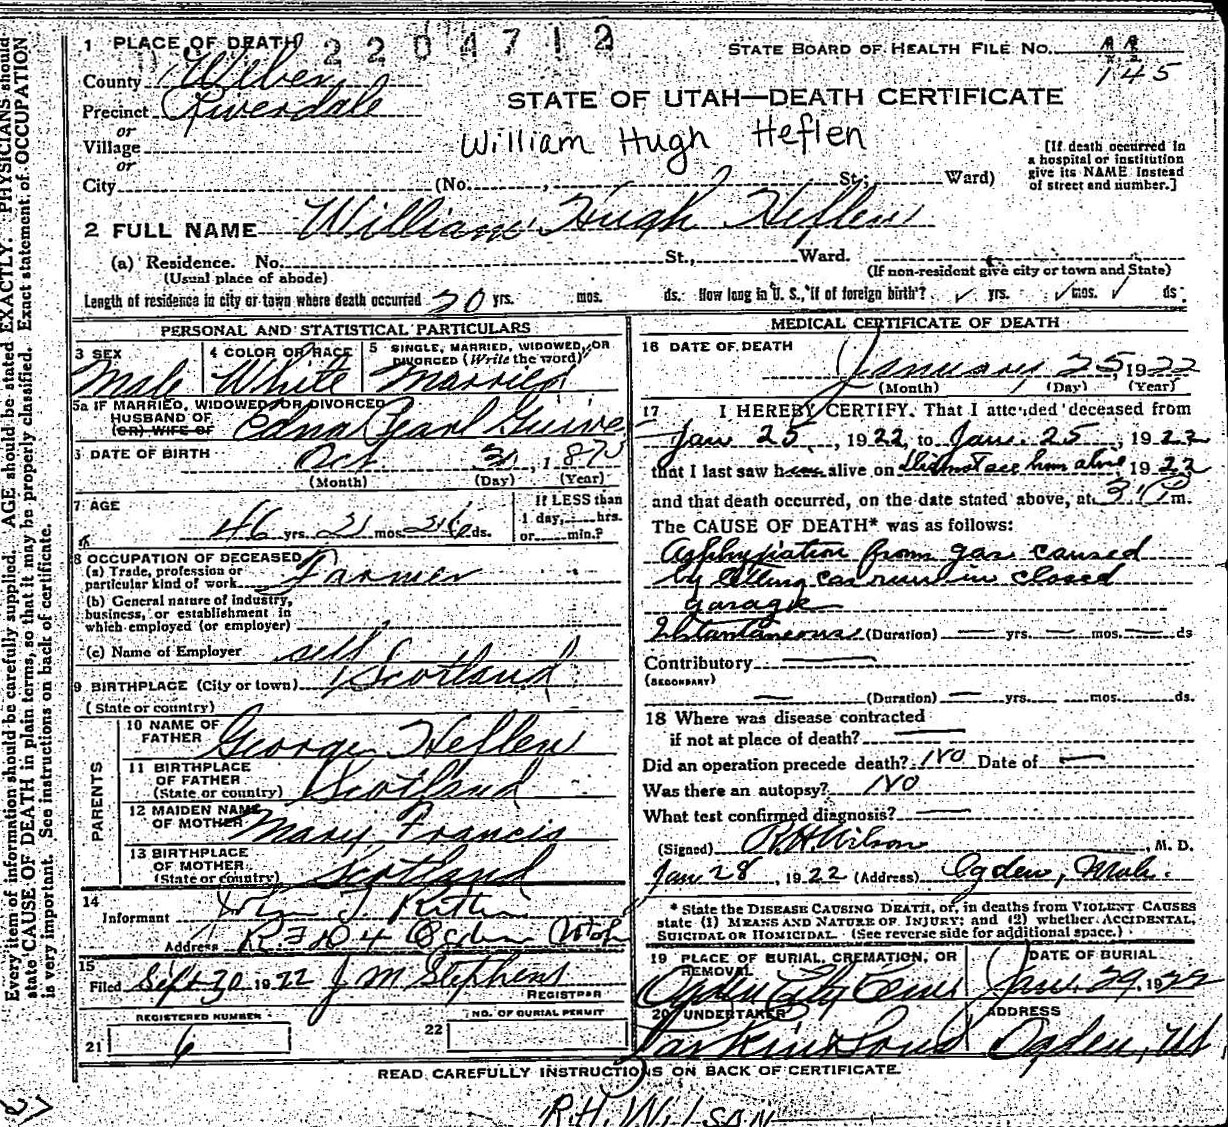 1 PLACE OF DEATH 2204712
STATE BOARD OF HEALTH FILE No.
145
County Weber
Precinct Riverdale
or
Village
or
City (No. St.; Ward)
STATE OF UTAH—DEATH CERTIFICATE
William Hugh Heflen
[If death occurred in
a hospital or institution
give its NAME instead
of street and number.]
2 FULL NAME William Hugh Heflen
(a) Residence. No. St., Ward.
(Usual place of abode) (If non-resident give city or town and State)
Length of residence in city or town where death occurred 20 yrs. mos. ds. How long in U. S., if of foreign birth? yrs. mos. ds.
PERSONAL AND STATISTICAL PARTICULARS
3 SEX 4 COLOR OR RACE 5 SINGLE, MARRIED, WIDOWED, OR
DIVORCED (Write the word)
Male White Married
5a IF MARRIED, WIDOWED OR DIVORCED
HUSBAND OF
(OR) WIFE OF Edna Pearl
DATE OF BIRTH Oct 187
(Month) (Day) (Year)
7 AGE If LESS than
46 yrs. mos. ds. 1 day, hrs.
or min.?
8 OCCUPATION OF DECEASED
(a) Trade, profession or
particular kind of work Farmer
(b) General nature of industry,
business, or establishment in
which employed (or employer)
(c) Name of Employer self
9 BIRTHPLACE (City or town) Scotland
(State or country)
PARENTS
10 NAME OF
FATHER George Heflen
11 BIRTHPLACE
OF FATHER
(State or country) Scotland
12 MAIDEN NAME
OF MOTHER Mary Francis
13 BIRTHPLACE
OF MOTHER
(State or country) Scotland
14
Informant
Address R F D 4 Ogden Utah
15
Filed Sept 30 1922 J M Stephens
REGISTRAR
REGISTERED NUMBER NO. OF BURIAL PERMIT
21 6 22
MEDICAL CERTIFICATE OF DEATH
16 DATE OF DEATH
January 25, 1922
(Month) (Day) (Year)
17 I HEREBY CERTIFY. That I attended deceased from
Jan 25, 1922, to Jan. 25, 1922
that I last saw him alive on Did not see him alive 1922
and that death occurred, on the date stated above, at m.
The CAUSE OF DEATH* was as follows:
Asphyxiation from gas caused
by letting car run in closed
garage
Instantaneous (Duration) yrs. mos. ds
Contributory
(SECONDARY)
(Duration) yrs. mos. ds.
18 Where was disease contracted
if not at place of death?
Did an operation precede death? No Date of
Was there an autopsy? No
What test confirmed diagnosis?
(Signed) R.H. Wilson, M. D.
Jan 28, 1922 (Address) Ogden, Utah.
* State the DISEASE CAUSING DEATH, or, in deaths from VIOLENT CAUSES
state (1) MEANS AND NATURE OF INJURY; and (2) whether ACCIDENTAL,
SUICIDAL OR HOMICIDAL. (See reverse side for additional space.)
19 PLACE OF BURIAL, CREMATION, OR
REMOVAL DATE OF BURIAL
Ogden City Cem Jan. 29, 1922
20 UNDERTAKER ADDRESS
Larkin & Sons Ogden, Ut
READ CAREFULLY INSTRUCTIONS ON BACK OF CERTIFICATE.
R.H. WILSON
Every item of information should be carefully supplied. AGE should be stated EXACTLY. PHYSICIANS should
state CAUSE OF DEATH in plain terms, so that it may be properly classified. Exact statement of OCCUPATION
is very important. See instructions on back of certificate.